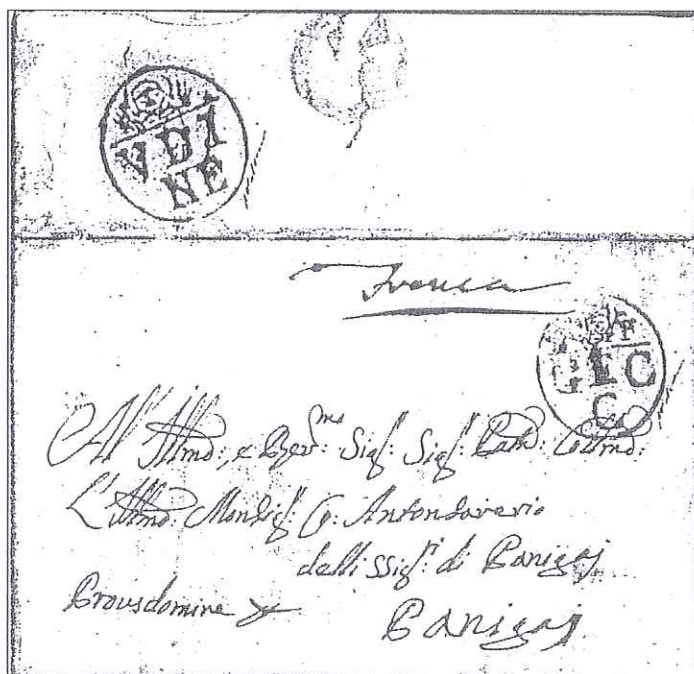 VDI
NE
Franca
LC
C
All' Illmo: e Rev:mo Sigr: Sigr: Pad: Colmo:
L'Illmo: Monsigr: Co: Antonsaverio
delli SSigri di Panigaj
Panigaj